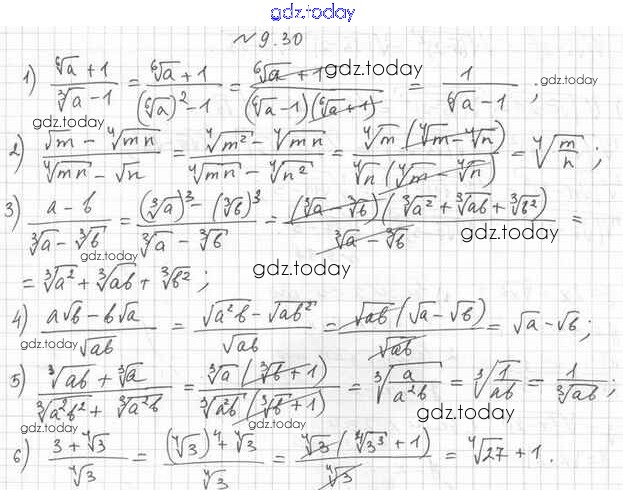 gdz.today
№9.30
1) \frac{\sqrt[6]{a}+1}{\sqrt[3]{a}-1} = \frac{\sqrt[6]{a}+1}{(\sqrt[6]{a})^2-1} = \frac{\sqrt[6]{a}+1}{(\sqrt[6]{a}-1)(\sqrt[6]{a}+1)} = \frac{1}{\sqrt[6]{a}-1};
gdz.today
gdz.today
gdz.today
2) \frac{\sqrt{m}-\sqrt[4]{mn}}{\sqrt[4]{mn}-\sqrt{n}} = \frac{\sqrt[4]{m^2}-\sqrt[4]{mn}}{\sqrt[4]{mn}-\sqrt[4]{n^2}} = \frac{\sqrt[4]{m}(\sqrt[4]{m}-\sqrt[4]{n})}{\sqrt[4]{n}(\sqrt[4]{m}-\sqrt[4]{n})} = \sqrt[4]{\frac{m}{n}};
3) \frac{a-b}{\sqrt[3]{a}-\sqrt[3]{b}} = \frac{(\sqrt[3]{a})^3-(\sqrt[3]{b})^3}{\sqrt[3]{a}-\sqrt[3]{b}} = \frac{(\sqrt[3]{a}-\sqrt[3]{b})(\sqrt[3]{a^2}+\sqrt[3]{ab}+\sqrt[3]{b^2})}{\sqrt[3]{a}-\sqrt[3]{b}} =
gdz.today
gdz.today
gdz.today
= \sqrt[3]{a^2}+\sqrt[3]{ab}+\sqrt[3]{b^2};
4) \frac{a\sqrt{b}-b\sqrt{a}}{\sqrt{ab}} = \frac{\sqrt{a^2b}-\sqrt{ab^2}}{\sqrt{ab}} = \frac{\sqrt{ab}(\sqrt{a}-\sqrt{b})}{\sqrt{ab}} = \sqrt{a}-\sqrt{b};
gdz.today
gdz.today
5) \frac{\sqrt[3]{ab}+\sqrt[3]{a}}{\sqrt[3]{a^2b^2}+\sqrt[3]{a^2b}} = \frac{\sqrt[3]{a}(\sqrt[3]{b}+1)}{\sqrt[3]{a^2b}(\sqrt[3]{b}+1)} = \sqrt[3]{\frac{a}{a^2b}} = \sqrt[3]{\frac{1}{ab}} = \frac{1}{\sqrt[3]{ab}};
gdz.today
gdz.today
6) \frac{3+\sqrt[4]{3}}{\sqrt[4]{3}} = \frac{(\sqrt[4]{3})^4+\sqrt[4]{3}}{\sqrt[4]{3}} = \frac{\sqrt[4]{3}(\sqrt[4]{3^3}+1)}{\sqrt[4]{3}} = \sqrt[4]{27}+1.